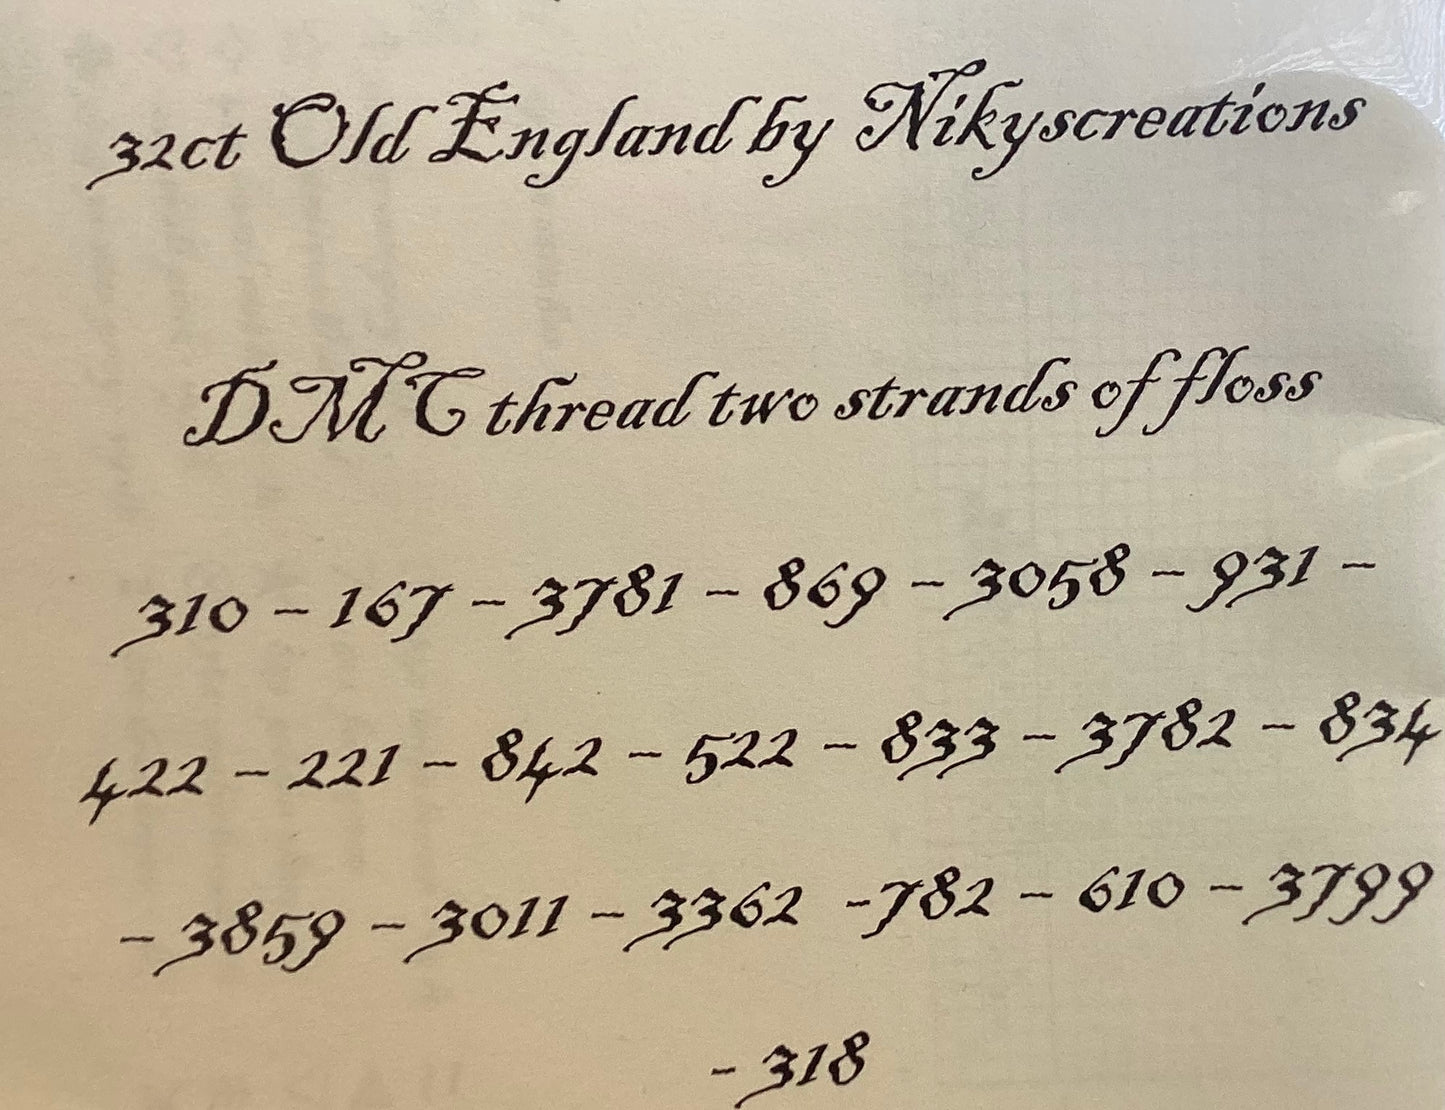 32ct Old England by Nikyscreations
DMC thread two strands of floss
310 - 167 - 3781 - 869 - 3058 - 931 -
422 - 221 - 842 - 522 - 833 - 3782 - 834
- 3859 - 3011 - 3362 -782 - 610 - 3799
- 318